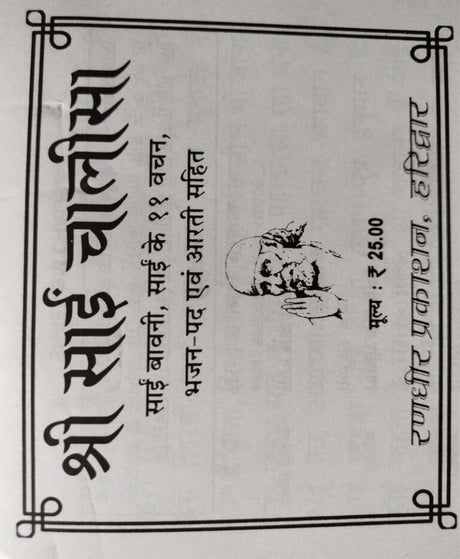 श्री साईं चालीसा
साईं बावनी, साईं के ११ वचन,
भजन-पद एवं आरती सहित
मूल्य : ₹ 25.00
रणधीर प्रकाशन, हरिद्वार